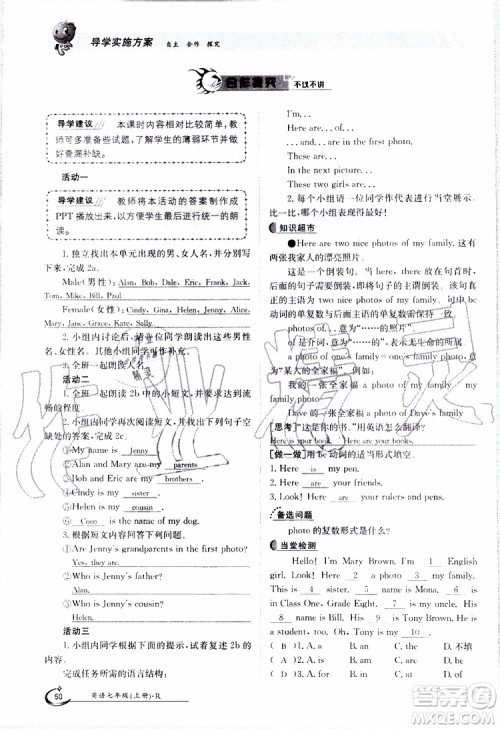 导学实施方案 自主 合作 探究
合作探究 不议不讲
导学建议 本课时内容相对比较简单,教
师可多准备些试题,了解学生的薄弱环节并做好
查漏补缺。
活动一
导学建议 教师将本活动的答案制作成
PPT 播放出来,以便学生最后进行统一的朗
读。
1. 独立找出本单元出现的男、女人名,分别写
下来,完成 2a。
Male(男性): Alan, Bob, Dale, Eric, Frank, Jack,
Tom, Mike, Bill, Paul
Female(女性): Cindy, Gina, Helen, Jenny, Linda,
Mary, Jane, Kate, Sally
2. 小组内讨论后,请每位同学朗读出这些男性
名、女性名。若其他同学有补充可作补充。
3. 全班一起朗读人名。
活动二
1. 全班一起朗读 2b 中的小短文,要求达到流
畅的程度。
2. 小组内同学再次阅读短文,找到下列句子空
缺处的答案,完成 2c。
①My name is Jenny.
②Alan and Mary are my parents.
③Bob and Eric are my brothers.
④Cindy is my sister.
⑤Helen is my cousin.
⑥ Coco is the name of my dog.
3. 根据短文内容回答下列问题。
①Are Jenny's grandparents in the first photo?
Yes, they are.
②Who is Jenny's father?
Alan.
③Who is Helen?
Jenny's cousin.
活动三
1. 小组内同学根据下面的提示,试着复述 2b 的内容。
完成任务所需的语言结构:
I'm...
Here are...
... are in the first photo.
In the next picture...
These are...
2. 每个小组请一位同学作代表,进行当堂展
示,其他小组同学可以补充。
知识超市
●Here are two nice photos of my family. 这有
两张我家人的漂亮照片。
Here are two nice photos of my family. 是一
个倒装句。here 放在句首时,后面的句子要倒装。该
句真正的主语为 two nice photos of my family, be
动词的单复数与后面主语的单复数保持一致。
●photo(s) of...意为“……的照片”
of 是介词,意为“……的”。
photo(s) of one's family/family photo(s),意
为“某人的全家福”。
Dave 的一张全家福 a photo of Dave's family
[思考]“这是你的书。”用英语怎么翻译?
Here is your book.
[做一做]用 be 动词的适当形式填空。
1. Here is my pen.
2. Here are your friends.
3. Look! Here are your rulers and pens.
备选问题
photo 的复数形式是什么?
当堂检测
Hello! I'm Mary Brown. I'm 1 English
girl. Look! Here 2 a photo 3 my family.
I have a 4 sister, 5 name is Mona. We are
in Class One, Grade Eight. 6 is my uncle. His
name is Bill. 7 Sonia. She is Bill's 8. She is
a student, too. 9 are my parents. I 10 my
family.
( B ) 1. A. a B. an C. the D. /
( A ) 2. A. is B. am C. are D. be
50 英语七年级(上册)·R